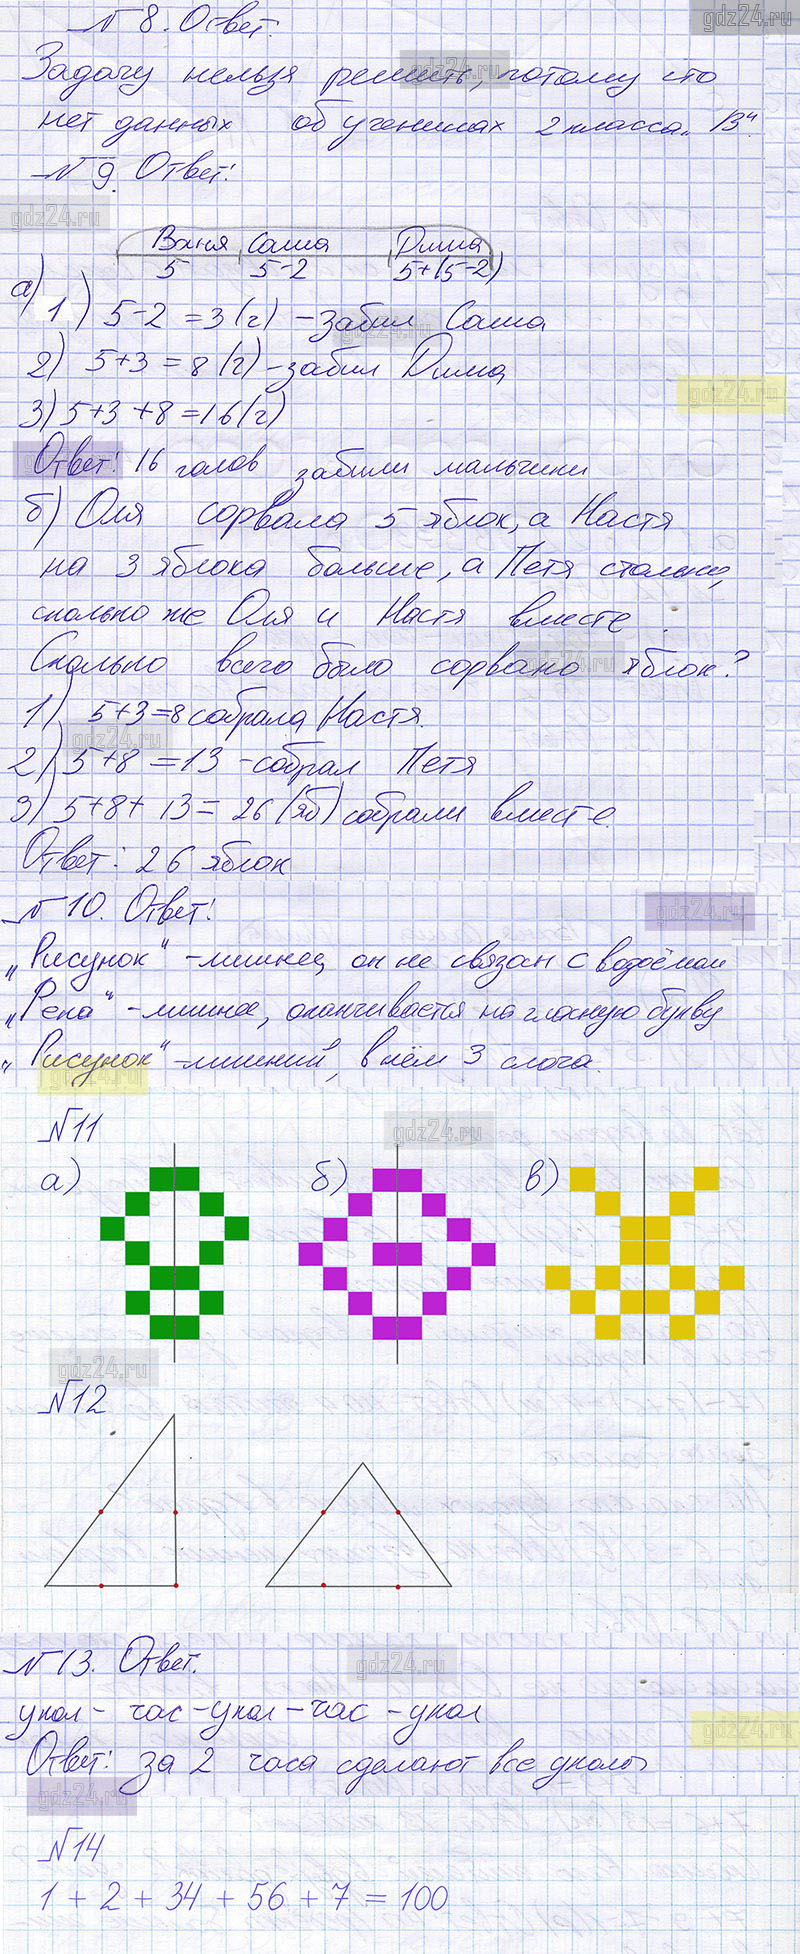 gdz24.ru
№ 8. Ответ.
Задачу нельзя решить, потому что
gdz24.ru
нет данных об учениках 2 класса „В“.
№ 9. Ответ:
gdz24.ru
Ваня Саша Дима
5 5-2 5+(5-2)
а) 1) 5-2=3(г) - забил Саша
gdz24.ru
2) 5+3=8(г) - забил Дима
gdz24.ru
3) 5+3+8=16(г)
Ответ: 16 голов забили мальчики
б) Оля сорвала 5 яблок, а Настя
на 3 яблока больше, а Петя столько,
сколько же Оля и Настя вместе.
Сколько всего было сорвано яблок?
gdz24.ru
1) 5+3=8 собрала Настя.
gdz24.ru
2) 5+8=13 - собрал Петя
3) 5+8+13=26(яб) собрали вместе.
Ответ: 26 яблок
№ 10. Ответ:
gdz24.ru
„Рисунок“ - лишнец, он не связан с водоёмом
„Река“ - лишнее, оканчивается на гласную букву
„Рисунок“ - лишний, в нём 3 слога.
gdz24.ru
№11
gdz24.ru
а) б) в)
gdz24.ru
№12
№ 13. Ответ.
gdz24.ru
укол - час - укол - час - укол
gdz24.ru
Ответ: за 2 часа сделают все уколы
gdz24.ru
№14
1 + 2 + 34 + 56 + 7 = 100